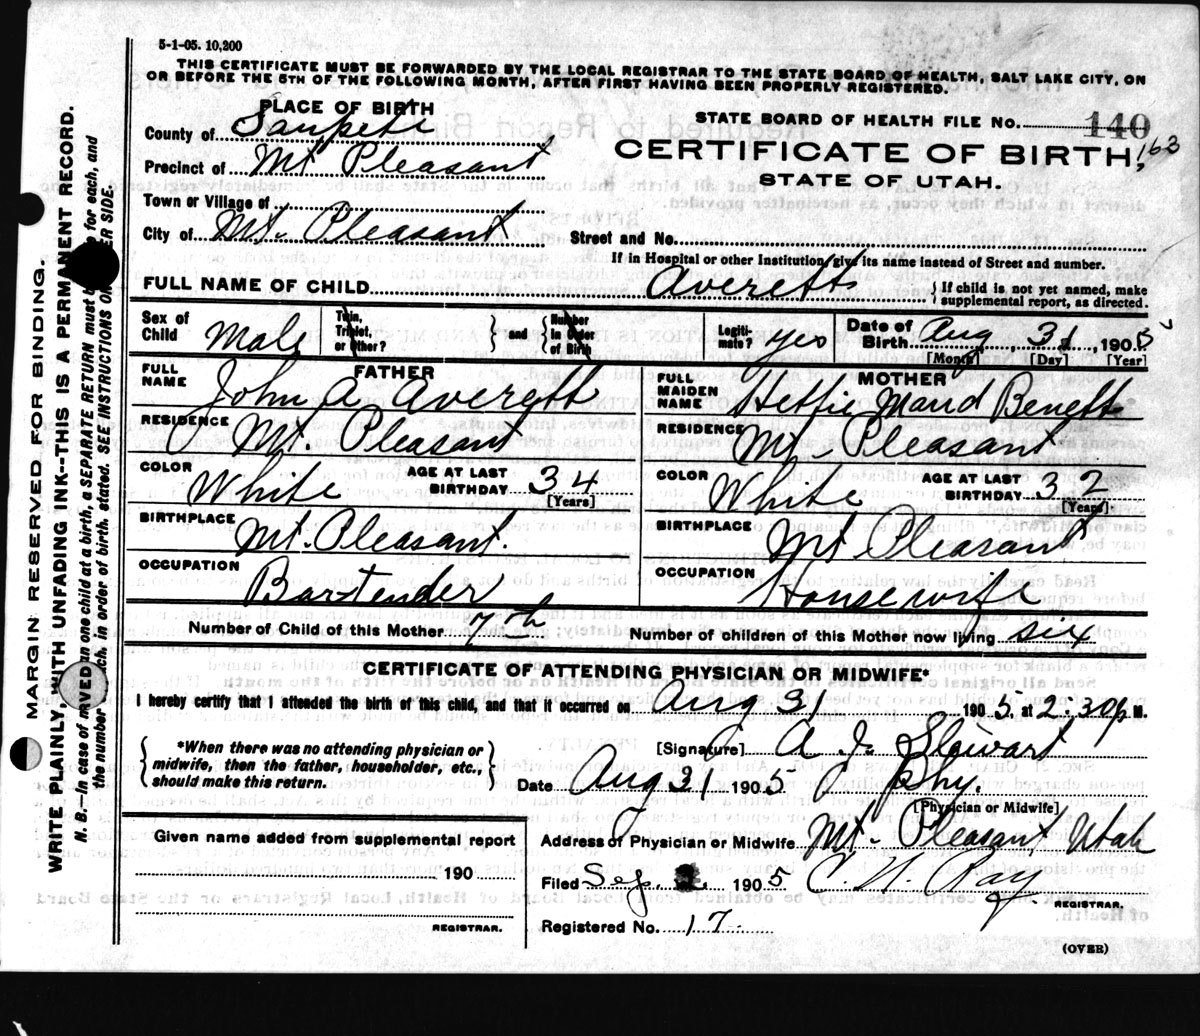 5-1-05. 10,200
THIS CERTIFICATE MUST BE FORWARDED BY THE LOCAL REGISTRAR TO THE STATE BOARD OF HEALTH, SALT LAKE CITY, ON
OR BEFORE THE 5TH OF THE FOLLOWING MONTH, AFTER FIRST HAVING BEEN PROPERLY REGISTERED.
PLACE OF BIRTH
County of Sanpete
Precinct of Mt Pleasant
Town or Village of
City of Mt. Pleasant
STATE BOARD OF HEALTH FILE NO. 140
163
CERTIFICATE OF BIRTH,
STATE OF UTAH.
Street and No.
If in Hospital or other Institution, give its name instead of Street and number.
FULL NAME OF CHILD Averett { If child is not yet named, make supplemental report, as directed.
Sex of Child Male Twin, Triplet, or Other? } and { Number in Order of Birth Legitimate? yes Date of Birth Aug 31, 1905
[Month] [Day] [Year]
FATHER
FULL NAME John A Averett
RESIDENCE Mt. Pleasant
COLOR White AGE AT LAST BIRTHDAY 34 [Years]
BIRTHPLACE Mt. Pleasant.
OCCUPATION Bartender
MOTHER
FULL MAIDEN NAME Hettie Maud Benett
RESIDENCE Mt. Pleasant
COLOR White AGE AT LAST BIRTHDAY 32 [Years]
BIRTHPLACE Mt. Pleasant
OCCUPATION Housewife
Number of Child of this Mother 7th Number of children of this Mother now living six
CERTIFICATE OF ATTENDING PHYSICIAN OR MIDWIFE*
I hereby certify that I attended the birth of this child, and that it occurred on Aug 31 1905, at 2:30 p M.
{ *When there was no attending physician or midwife, then the father, householder, etc., should make this return. }
[Signature] A J Stewart
Date Aug 31 1905 Phy.
[Physician or Midwife]
Given name added from supplemental report
190
REGISTRAR.
Address of Physician or Midwife Mt. Pleasant Utah
Filed Sep 1905 C. W. Ray
REGISTRAR.
Registered No. 17
(OVER)
MARGIN RESERVED FOR BINDING.
WRITE PLAINLY, WITH UNFADING INK--THIS IS A PERMANENT RECORD.
N. B.--In case of more than one child at a birth, a SEPARATE RETURN must be for each, and
the number of each, in order of birth, stated. SEE INSTRUCTIONS ON OTHER SIDE.